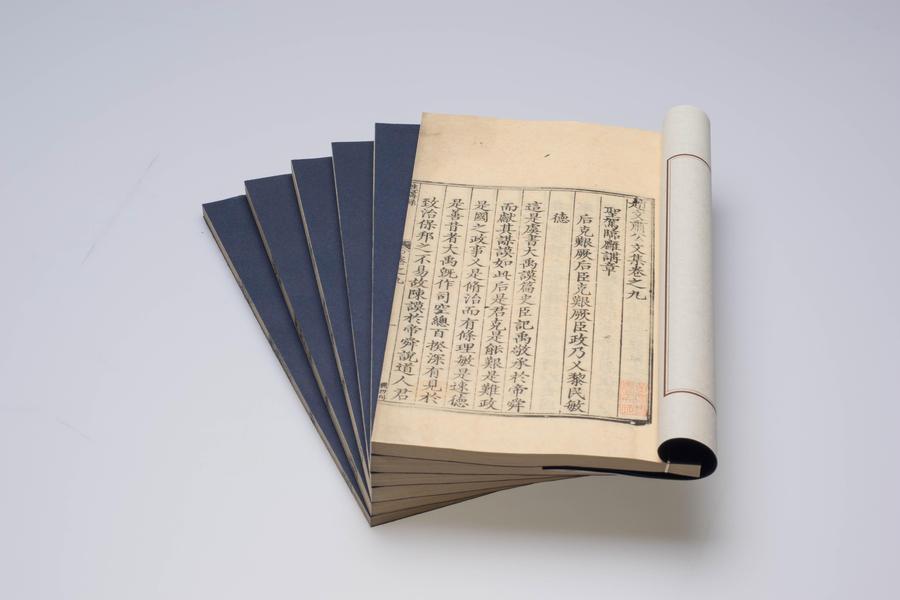 趙文肅公文集卷之九
聖駕臨雍講章
后克艱厥后臣克艱厥臣政乃乂黎民敏
德
這是虞書大禹謨篇史臣記禹敬承於帝舜
而獻其謀謨如此后是君克是能艱是難政
是國之政事乂是脩治而有條理敏是速德
是善昔者大禹旣作司空總百揆深有見於
致治保邦之不易故陳謨於帝舜說道人君